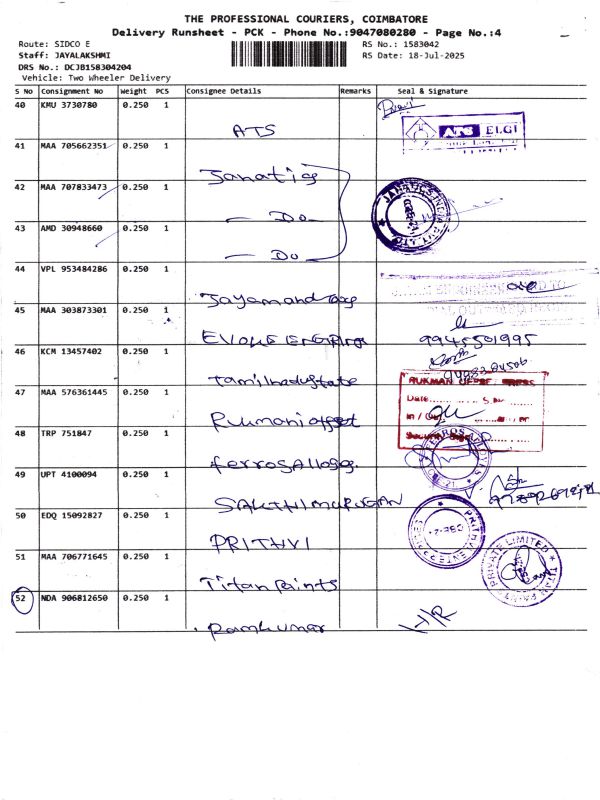 THE PROFESSIONAL COURIERS, COIMBATORE
Delivery Runsheet - PCK - Phone No.:9047080280 - Page No.:4
Route: SIDCO E
RS No.: 1583042
Staff: JAYALAKSHMI
RS Date: 18-Jul-2025
DRS No.: DCJB158304204
Vehicle: Two Wheeler Delivery
S No Consignment No Weight PCS Consignee Details Remarks Seal & Signature
40 KMU 3730780 0.250 1
ATS
ATS ELGI
41 MAA 705662351 0.250 1
Janatics
42 MAA 707833473 0.250 1
— Do —
JANATICS INDIA PVT LTD
43 AMD 30948660 0.250 1
— Do —
44 VPL 953484286 0.250 1
45 MAA 303873301 0.250 1
9945501995
46 KCM 13457402 0.250 1
Tamilnadustate
47 MAA 576361445 0.250 1
RUKMANI OFFSET
Date
In /
Security
Rukmani offset
48 TRP 751847 0.250 1
ferrosalloys
49 UPT 4100094 0.250 1
SAKTHIMURUGAN
50 EDQ 15092827 0.250 1
PRITHVI
PRITHVI
51 MAA 706771645 0.250 1
Titan Paints
TITAN PAINTS PRIVATE LIMITED
52 NDA 906812650 0.250 1
Ramkumar